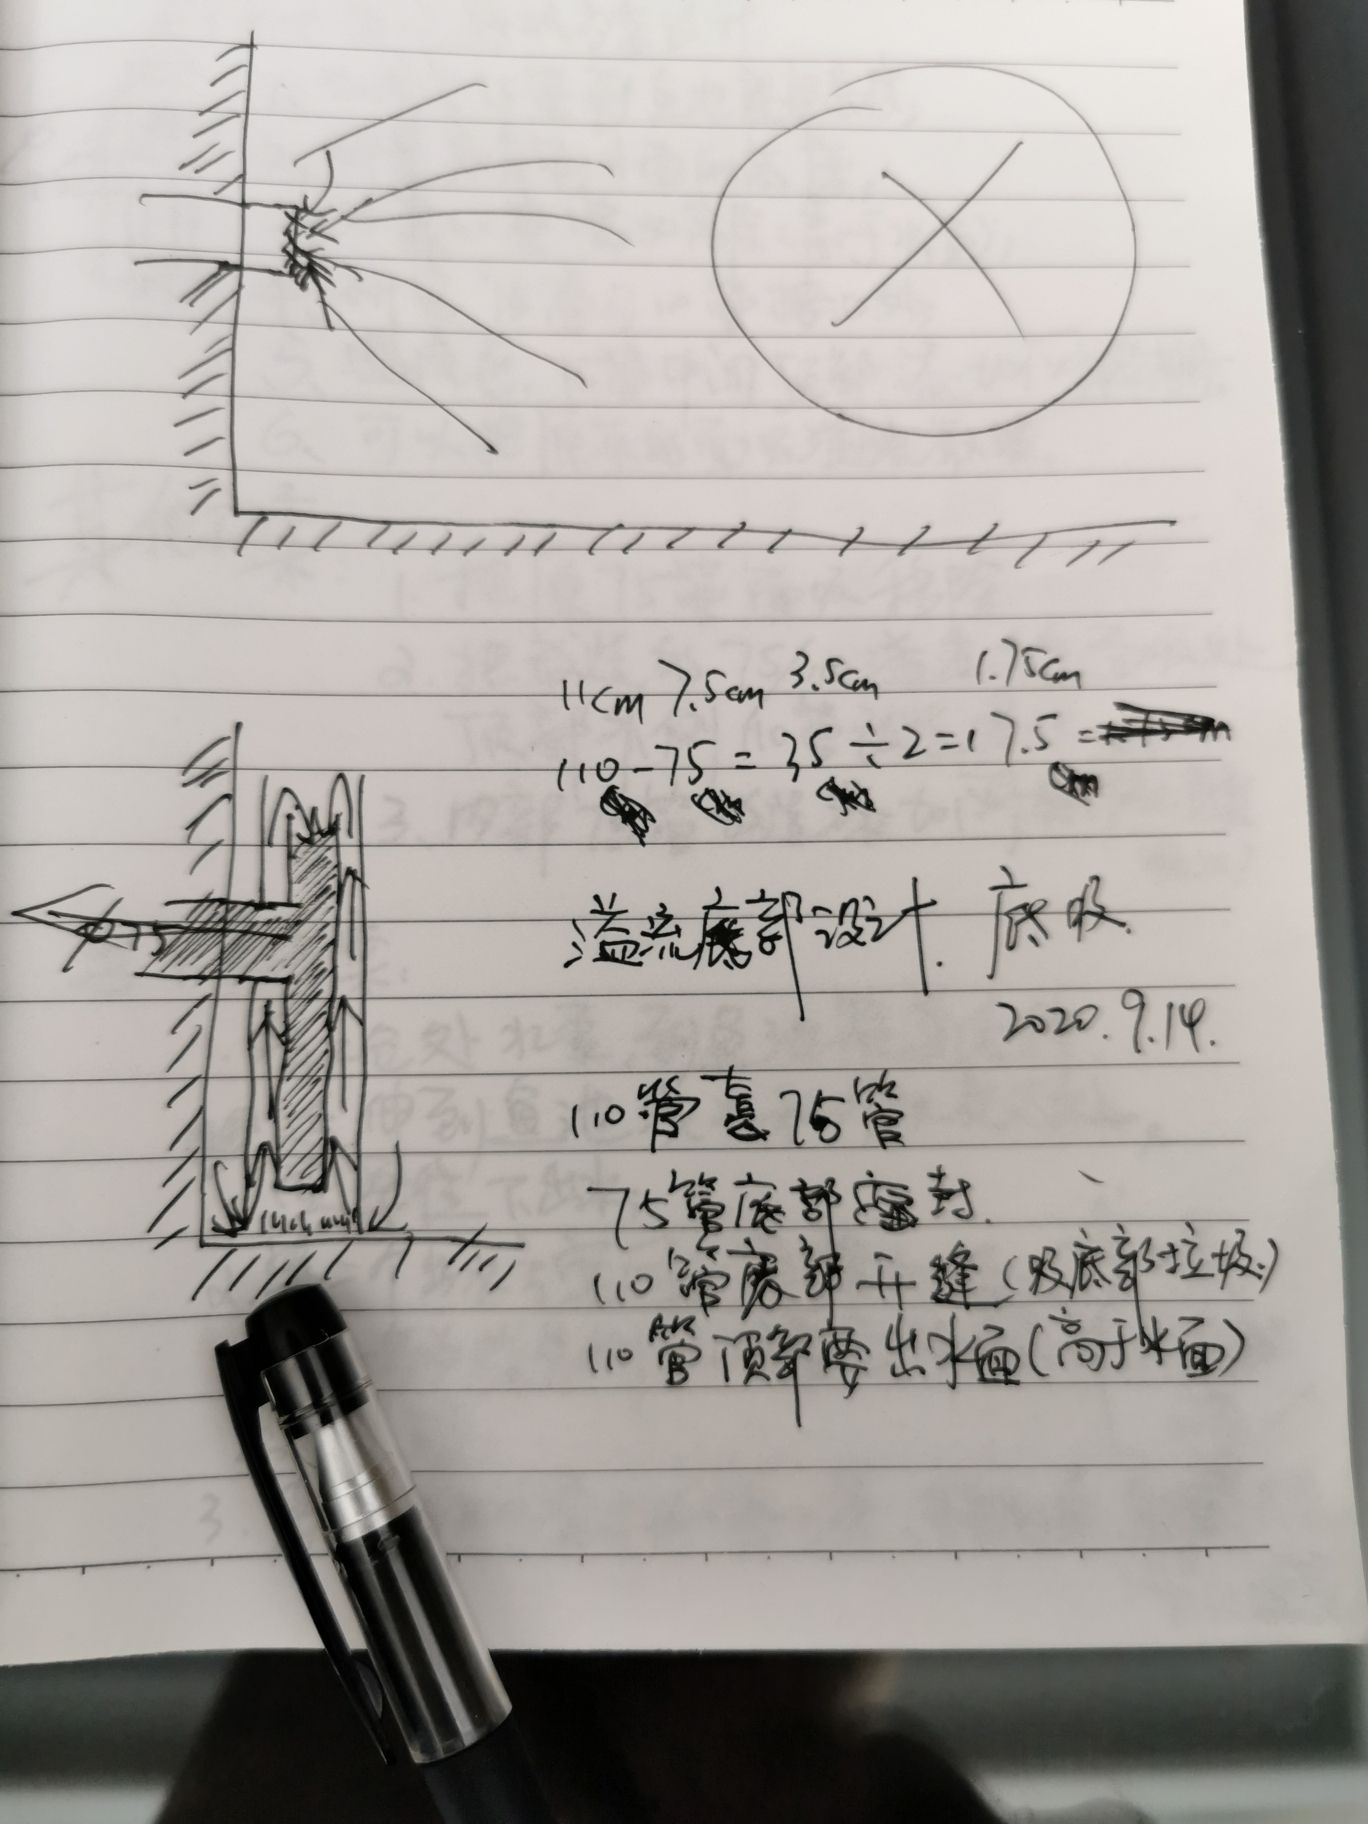 11cm 7.5cm 3.5cm 1.75cm
110-75=35÷2=17.5=
φ75
溢流底部设计. 底吸.
2020.9.14.
110管套75管
75管底部密封.
110管底部开缝(吸底部垃圾)
110管顶部要出水面(高于水面)